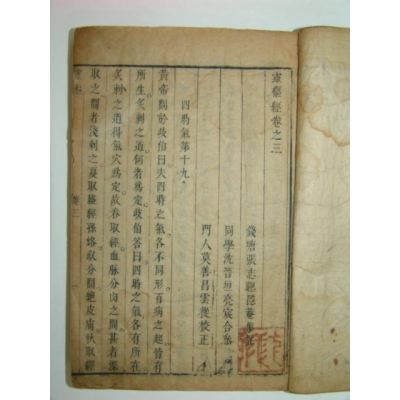 靈樞經卷之三
錢塘張志聰隱菴集註
同學沈晉垣亮宸合參
門人莫善昌雲從校正
四時氣第十九
黃帝問於岐伯曰夫四時之氣各不同形百病之起皆有
所生灸刺之道何者爲定岐伯答曰四時之氣各有所在
灸刺之道得氣穴爲定故春取經血脉分肉之間甚者深
取之間者淺刺之夏取盛經孫絡取分間絕皮膚秋取經
卷三